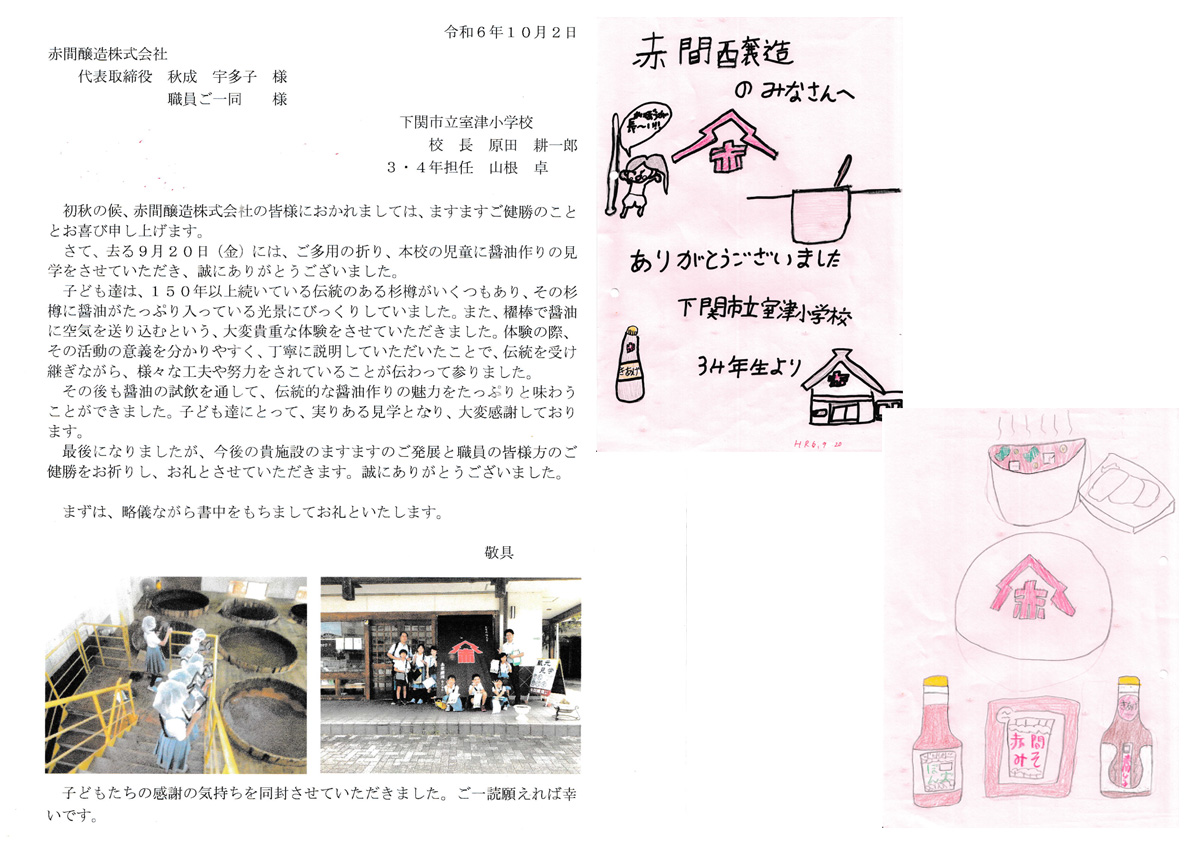 令和６年１０月２日
赤間醸造株式会社
代表取締役　秋成　宇多子　様
職員ご一同　　様
下関市立室津小学校
校　長　原田　耕一郎
３・４年担任　山根　卓
初秋の候、赤間醸造株式会社の皆様におかれましては、ますますご健勝のこと
とお喜び申し上げます。
さて、去る９月２０日（金）には、ご多用の折り、本校の児童に醤油作りの見
学をさせていただき、誠にありがとうございました。
子ども達は、１５０年以上続いている伝統のある杉樽がいくつもあり、その杉
樽に醤油がたっぷり入っている光景にびっくりしていました。また、櫂棒で醤油
に空気を送り込むという、大変貴重な体験をさせていただきました。体験の際、
その活動の意義を分かりやすく、丁寧に説明していただいたことで、伝統を受け
継ぎながら、様々な工夫や努力をされていることが伝わって参りました。
その後も醤油の試飲を通して、伝統的な醤油作りの魅力をたっぷりと味わう
ことができました。子ども達にとって、実りある見学となり、大変感謝しており
ます。
最後になりましたが、今後の貴施設のますますのご発展と職員の皆様方のご
健勝をお祈りし、お礼とさせていただきます。誠にありがとうございました。
まずは、略儀ながら書中をもちましてお礼といたします。
敬具
蔵元
見学
子どもたちの感謝の気持ちを同封させていただきました。ご一読願えれば幸
いです。
赤間醸造
のみなさんへ
赤
ありがとうございました
下関市立室津小学校
３４年生より
きあげ
赤
赤間
みそ